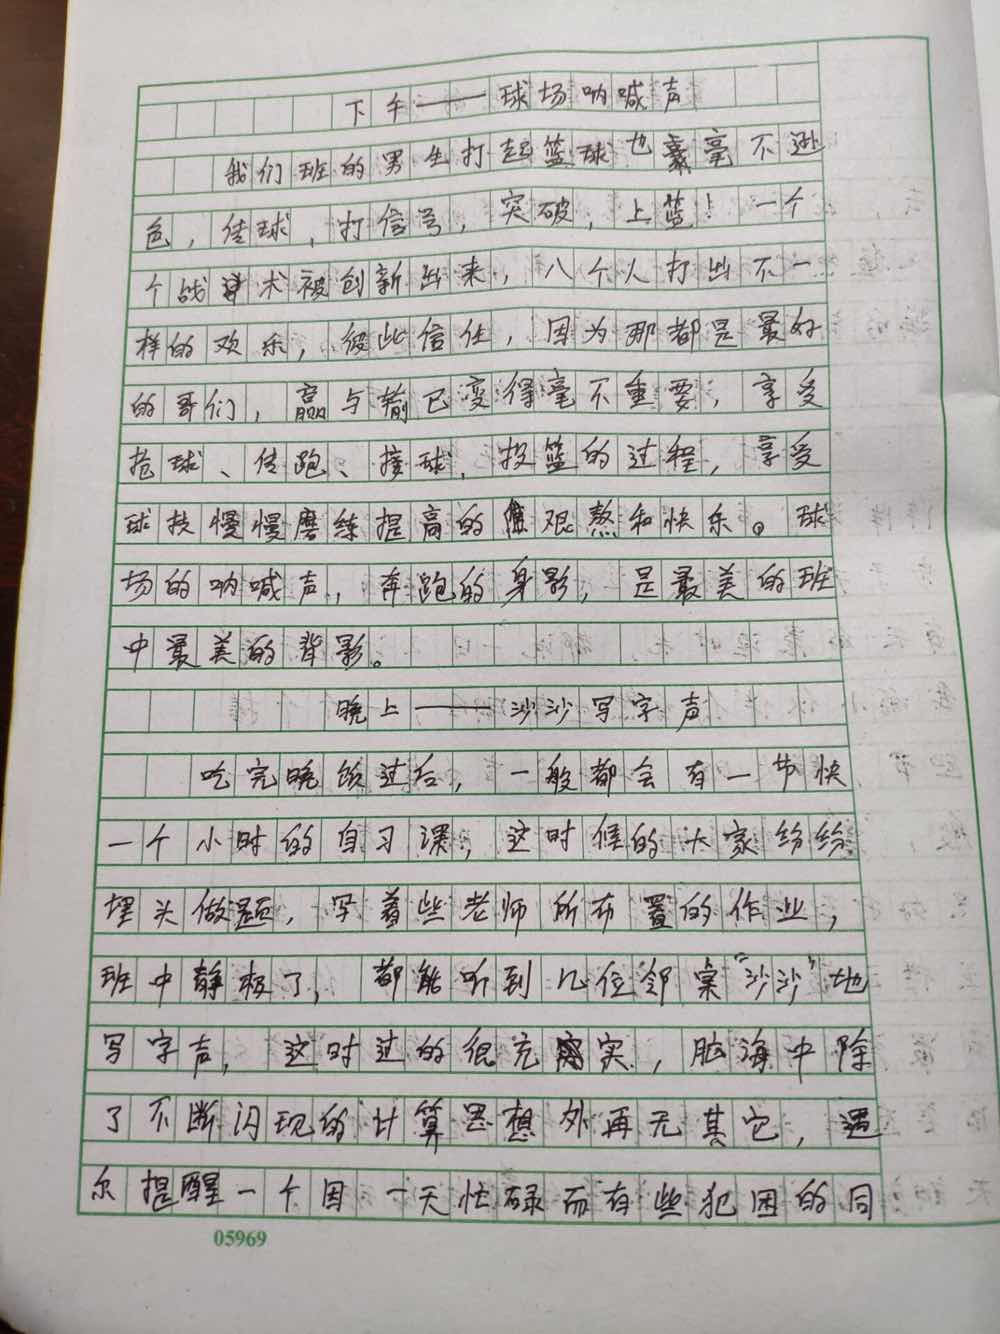 下午——球场呐喊声
我们班的男生打起篮球也毫不逊
色，传球，打信号，突破，上篮！一个
个战术被创新出来，八个人打出不一
样的欢乐，彼此信任，因为那都是最好
的哥们，赢与输已变得毫不重要，享受
抢球、传跑、接球、投篮的过程，享受
球技慢慢磨练提高的艰熬和快乐。球
场的呐喊声，奔跑的身影，是最美的班
中最美的背影。
晚上——沙沙写字声
吃完晚饭过后，一般都会有一节快
一个小时的自习课，这时候的大家纷纷
埋头做题，写着些老师所布置的作业，
班中静极了，都能听到几位邻桌“沙沙”地
写字声，这时过的很充实，脑海中除
了不断闪现的计算思想外再无其它，遇
尔提醒一个因一天忙碌而有些犯困的同
05969